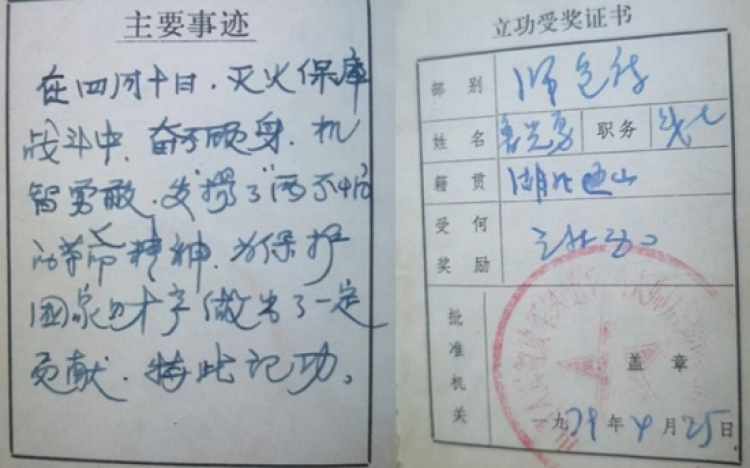 主要事迹
在四月十日，灭火保库
战斗中，奋不顾身，机
智勇敢，发揚了“两不怕”
的革命精神，为保护
国家财产做出了一定
贡献，特此记功。
立功受奖证书
部别
姓名 职务 战士
籍贯 湖北通山
受何奖励 三等功
批准机关
盖章
一九79年4月25日